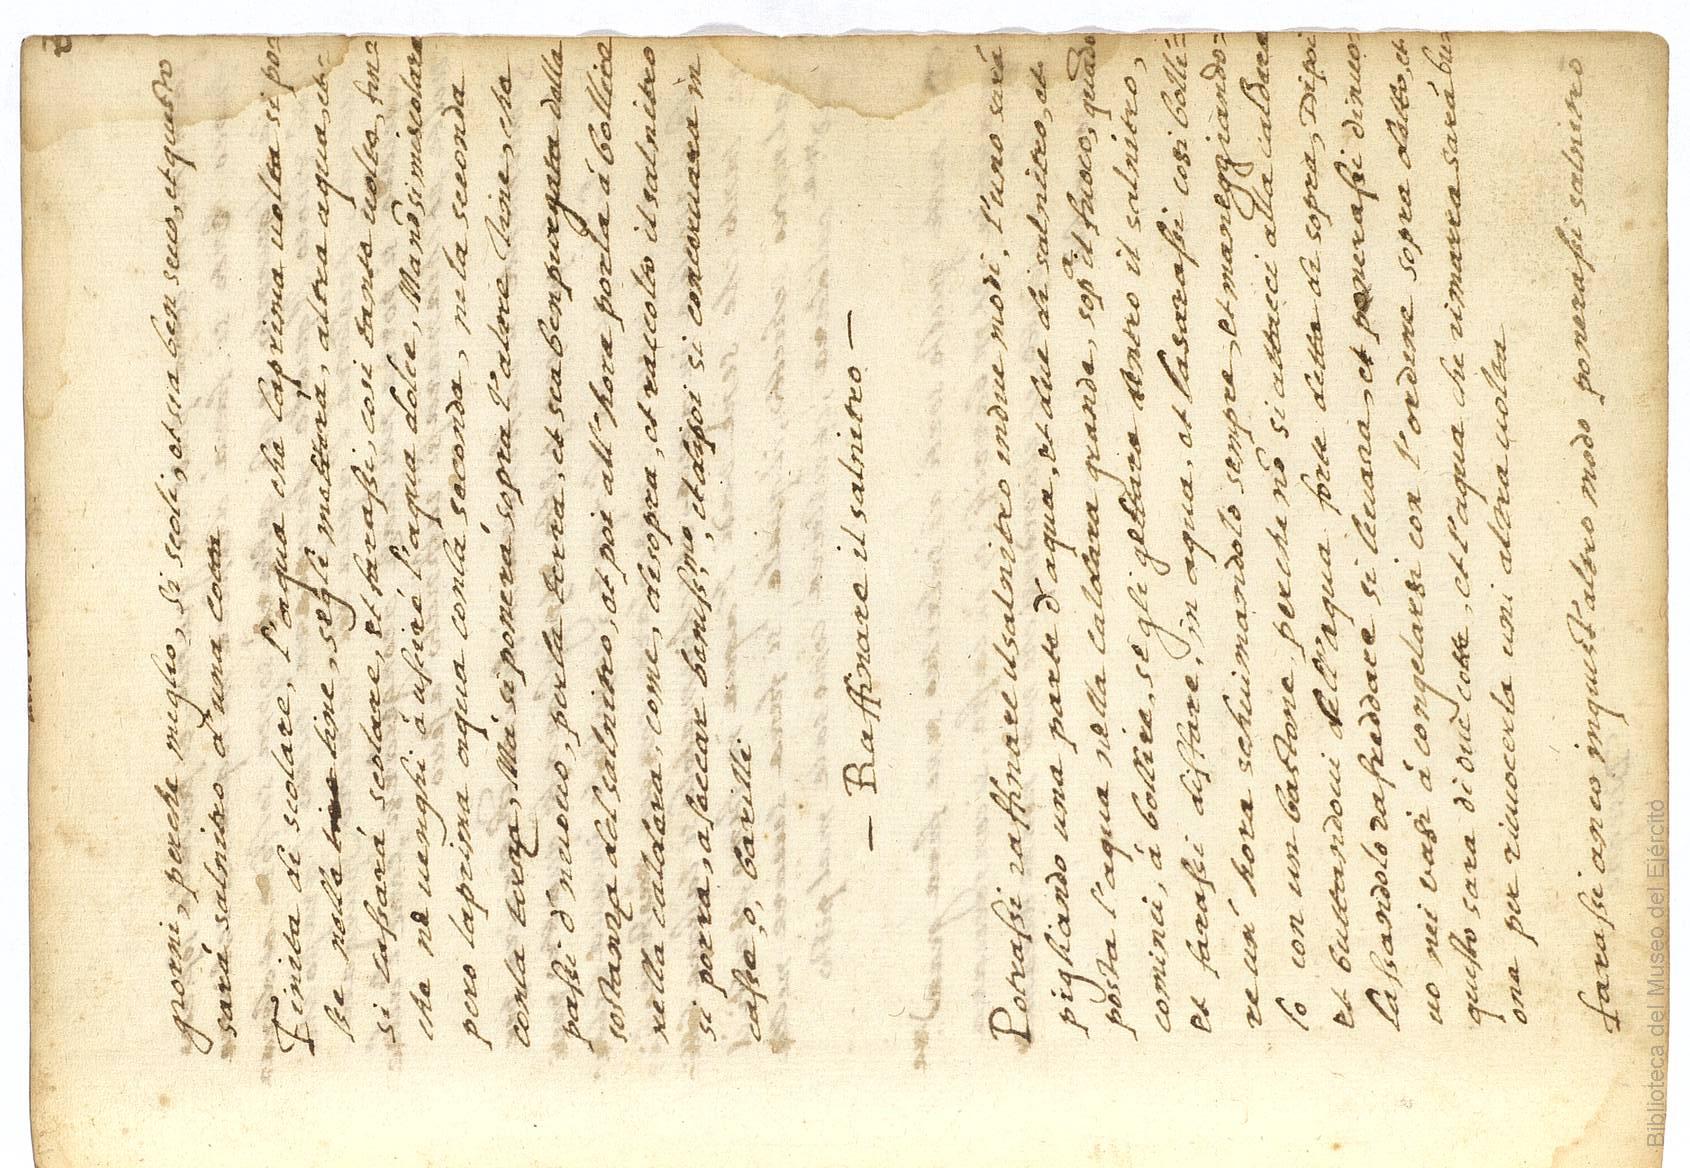 giorni, perche meglio, si scoli, et sia ben seco, et questo
sará salnitro d'una cotta
Finita di scolare, l'aqua che la prima uolta si po=
se nelle tine, se gli mettrá, altra aqua, et=
si lassará scolare, et farassi, cosi tante uolte, fin=
che ne uenghi á ussire l'aqua dolce, Ma nō si mescolara
pero la prima aqua con la seconda, ne la seconda
con la terza, Ma si ponerá sopra l'altre tine, che
passi d'nuouo, per la terra, et sia ben purgata dalla
sostanza del salnitro, et poi all'hora porla á bollire
nella caldara, come, di sopra, et raccolto il salnitro
si porra, a seccar beniss.mo, et dipoi si conseruara in
casse, o, barilli
— Raffinare il salnitro —
Potrassi raffinare il salnitro in due modi, l'uno sará
pigliando una parte d'aqua, et due di salnitro, et
posta l'aqua nella caldara grande, sop.a il fuoco, quādo
cominci, á bollire, se gli gettare dentro il salnitro,
et farassi disfare, in aqua, et lasarassi cosi bolli=
re un' hora schiumandolo sempre, et maneggiando=
lo con un bastone, perche nō si attacci alla caldara
et buttandoui dell'aqua forte detta di sopra, Dipoi
lassandolo rafreddare si leuara, et ponerassi di nuo=
uo nei uasi á congelarsi con l'ordine sopra detto, et
questo sara di due cotte, et l'aqua che rimarra sará bu=
ona per ricuocerla uni altra uolta
Farassi anco in quest'altro modo ponerassi salnitro
Biblioteca del Museo del Ejército